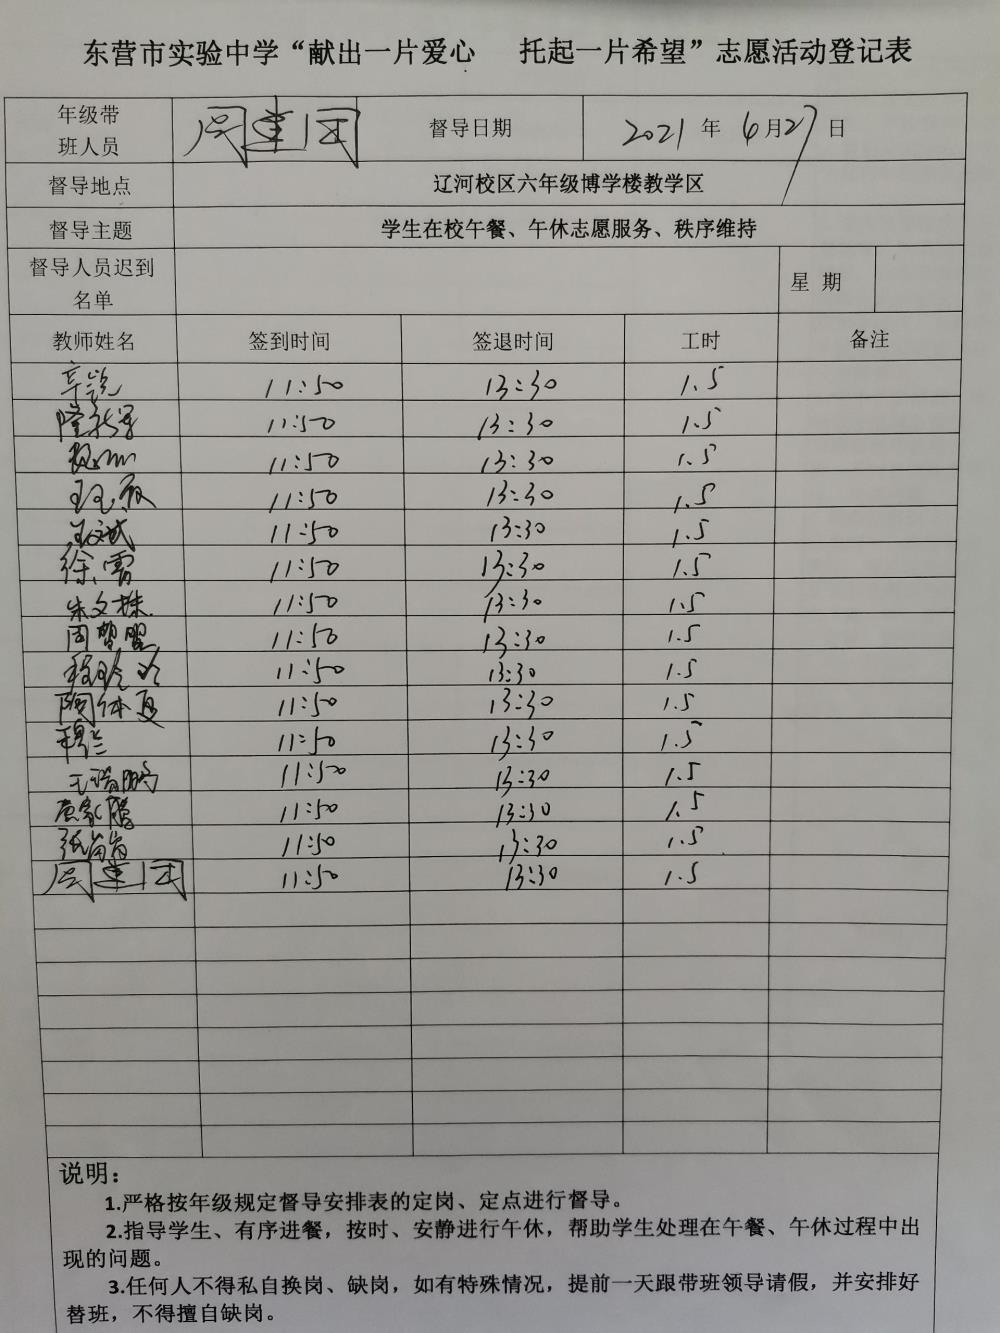 东营市实验中学“献出一片爱心 托起一片希望”志愿活动登记表
年级带班人员 周建国 督导日期 2021年6月27日
督导地点 辽河校区六年级博学楼教学区
督导主题 学生在校午餐、午休志愿服务、秩序维持
督导人员迟到名单 星期
教师姓名 签到时间 签退时间 工时 备注
11:50 13:30 1.5
11:50 13:30 1.5
11:50 13:30 1.5
11:50 13:30 1.5
王文斌 11:50 13:30 1.5
徐雪 11:50 13:30 1.5
朱文姝 11:50 13:30 1.5
周 11:50 13:30 1.5
11:50 13:30 1.5
11:50 13:30 1.5
11:50 13:30 1.5
王瑞鹏 11:50 13:30 1.5
11:50 13:30 1.5
张 11:50 13:30 1.5
周建国 11:50 13:30 1.5
说明：
1.严格按年级规定督导安排表的定岗、定点进行督导。
2.指导学生、有序进餐，按时、安静进行午休，帮助学生处理在午餐、午休过程中出
现的问题。
3.任何人不得私自换岗、缺岗，如有特殊情况，提前一天跟带班领导请假，并安排好
替班，不得擅自缺岗。